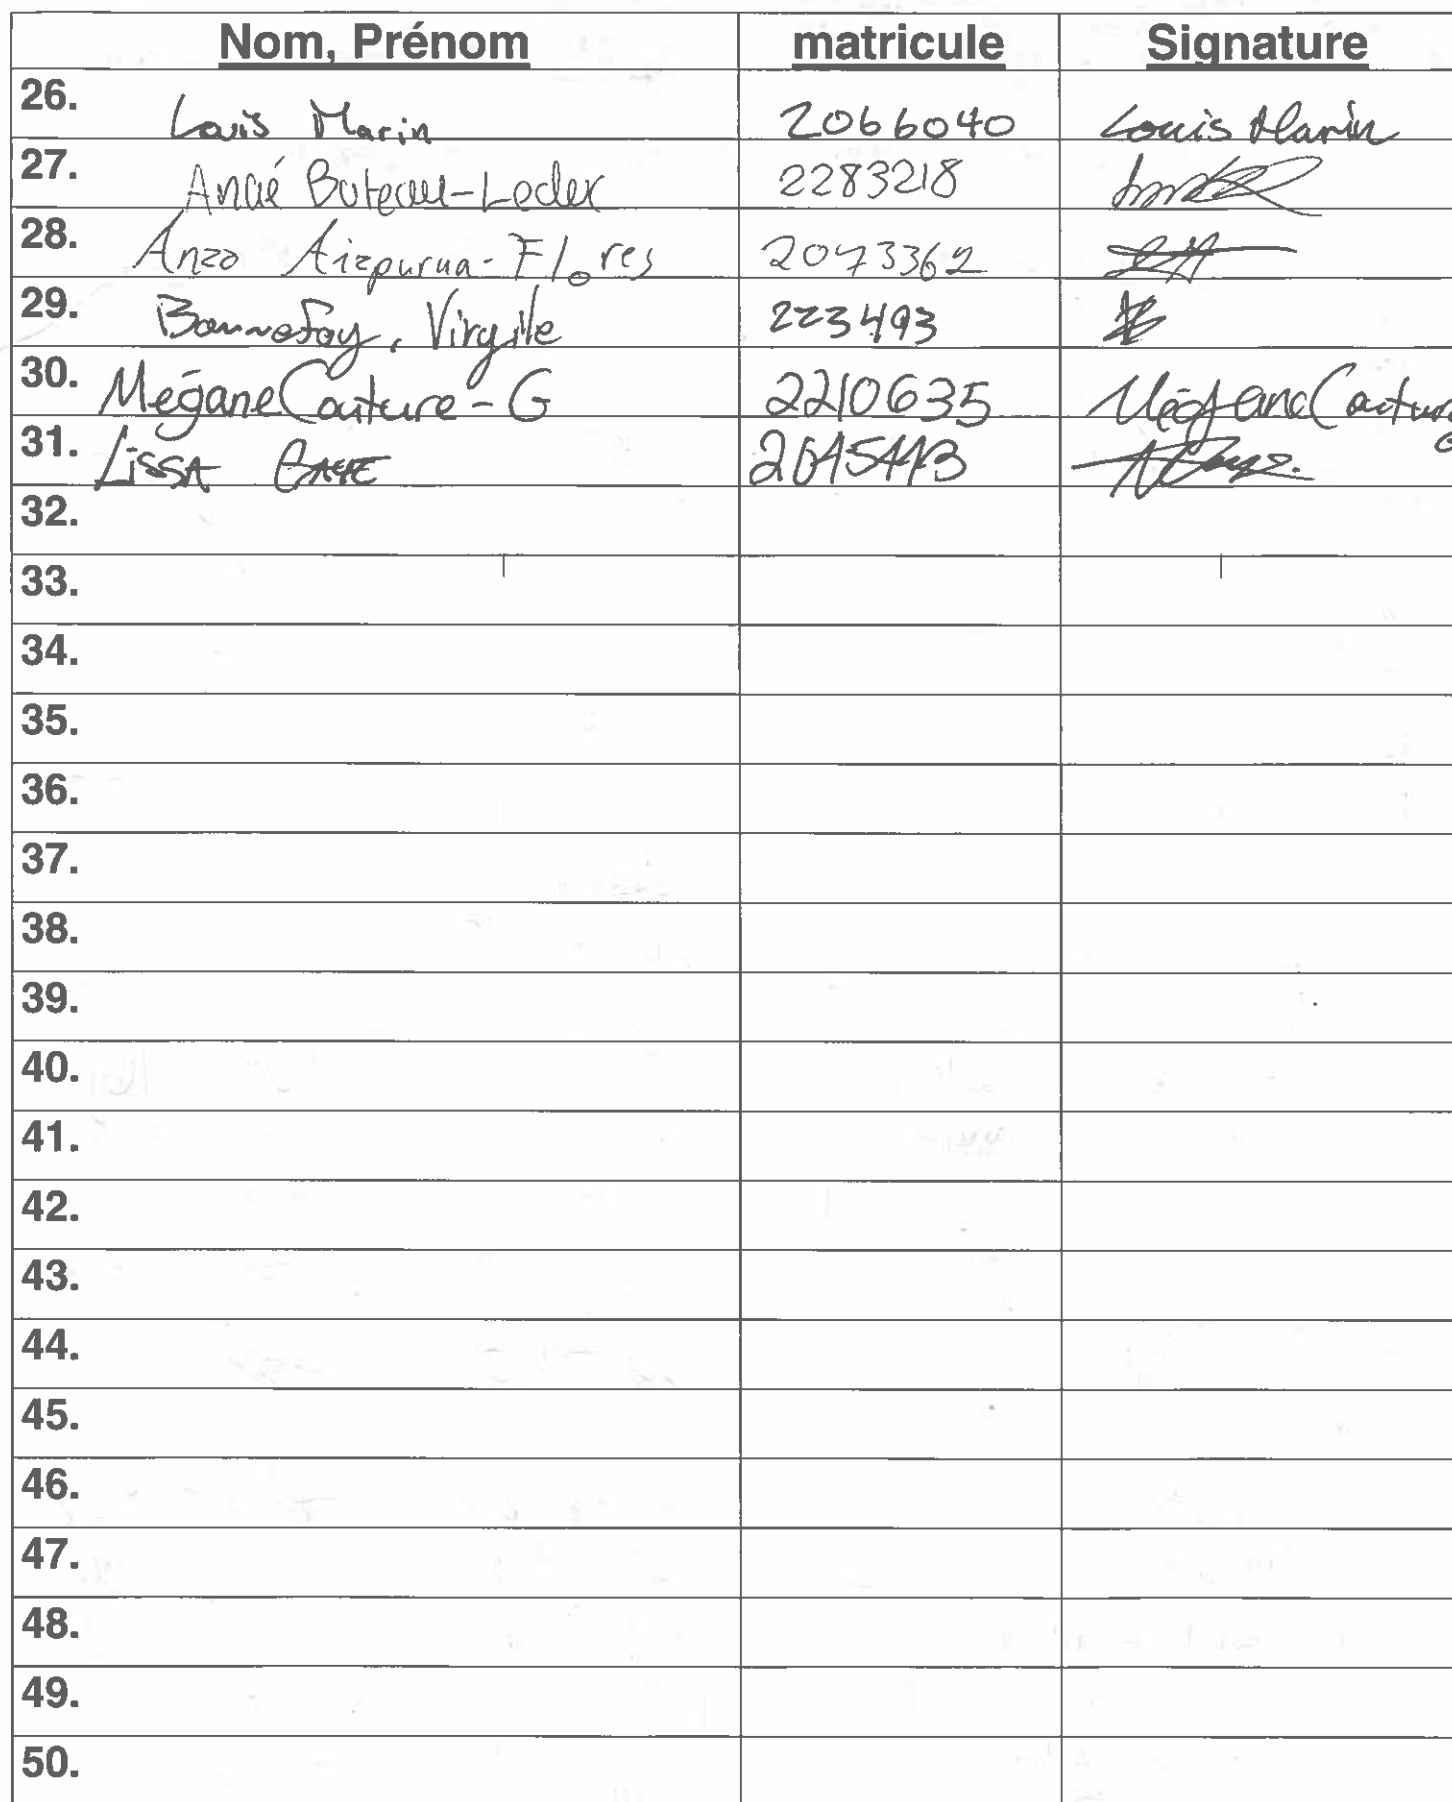 Nom, Prénom matricule Signature
26. Louis Marin 2066040 Louis Marin
27. André 2283218
28. Anzo Aizpurua-Flores 2073362
29. Bonnefoy, Virgile 223493
30. Mégane Couture-G 2210635 Mégane Couture
31. Lissa
32.
33.
34.
35.
36.
37.
38.
39.
40.
41.
42.
43.
44.
45.
46.
47.
48.
49.
50.